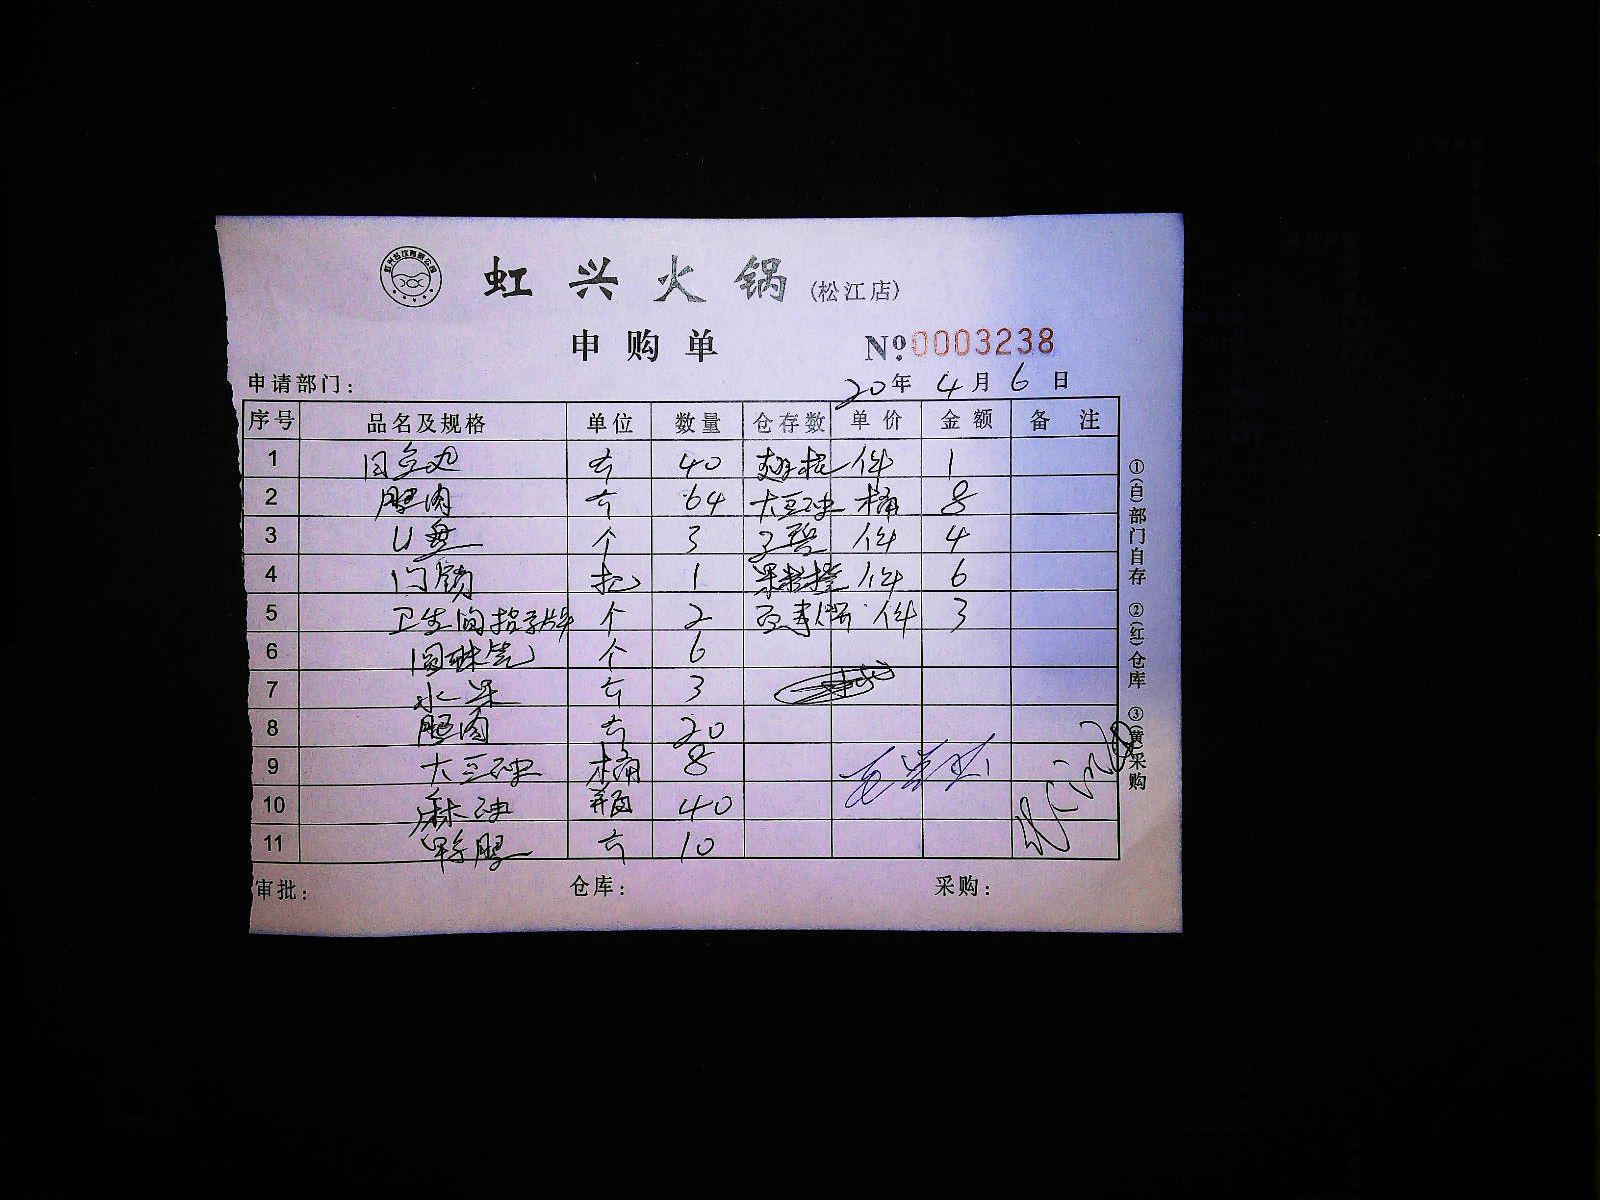 虹兴火锅 (松江店)
申购单 №0003238
申请部门: 20年 4月 6日
序号 品名及规格 单位 数量 仓存数 单价 金额 备注
1 斤 40 件 1
2 腿肉 斤 64 大豆油 桶 8
3 U盘 个 3 件 4
4 门锁 把 1 果粒橙 件 6
5 卫生间指示牌 个 2 件 3
6 个 6
7 水果 斤 3
8 腿肉 斤 20
9 大豆油 桶 8
10 麻油 瓶 40
11 斤 10
审批: 仓库: 采购:
①(白)部门自存 ②(红)仓库 ③(黄)采购